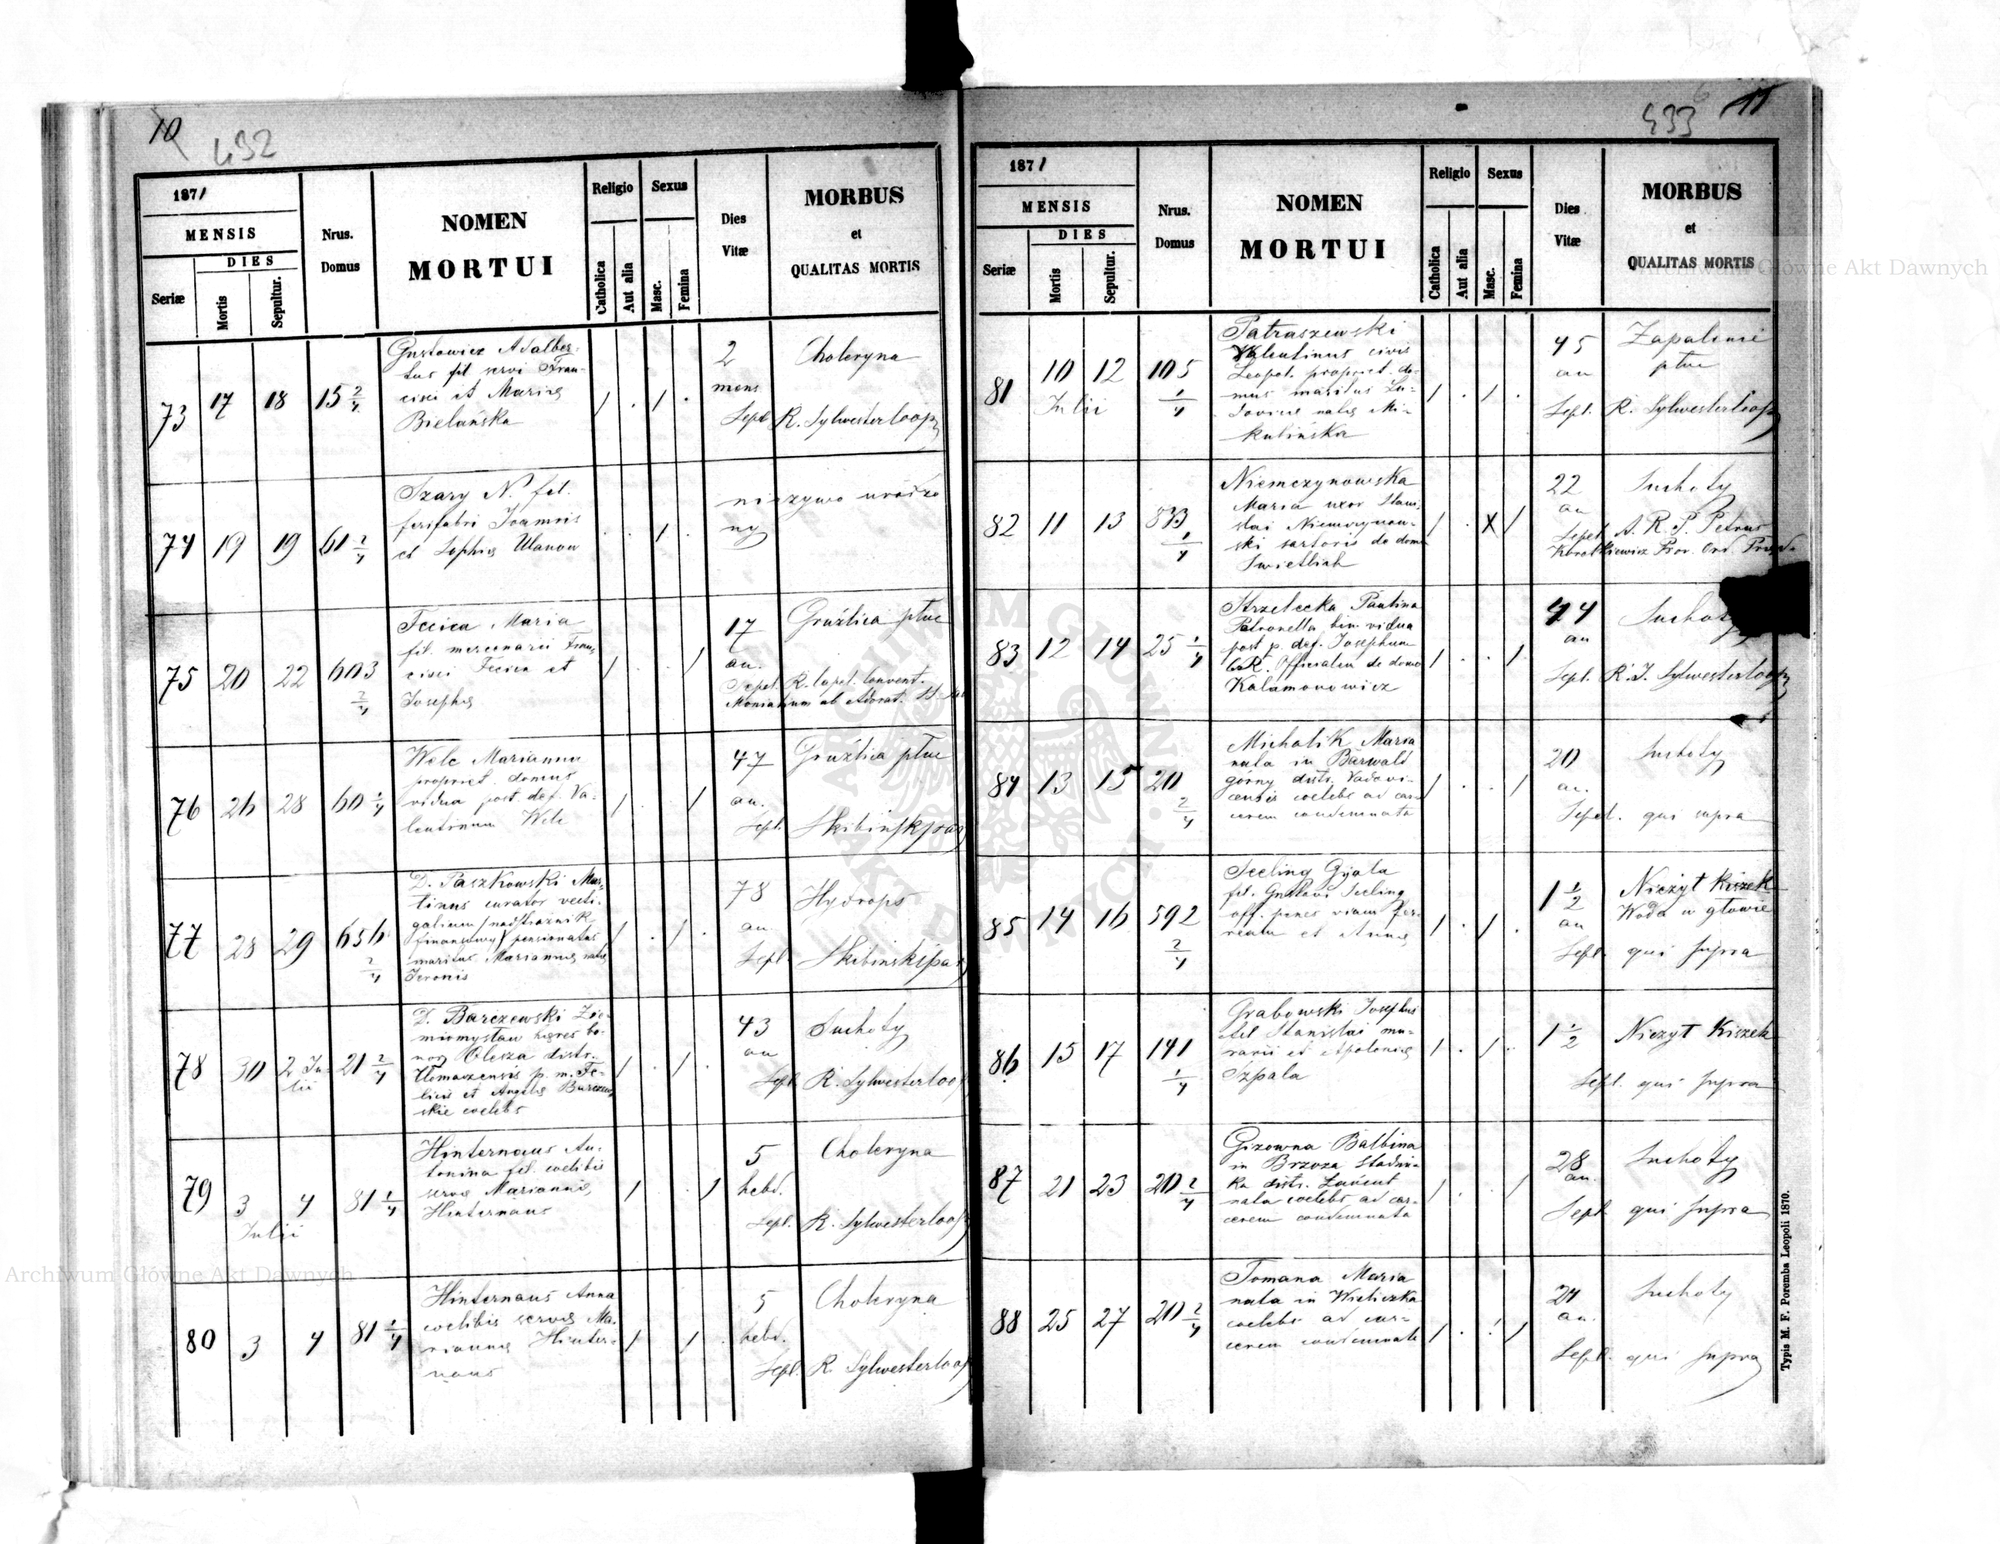 10
432
1871
MENSIS
DIES
Seriæ
Mortis
Sepultur.
Nrus.
Domus
NOMEN
MORTUI
Religio
Catholica
Aut alia
Sexus
Masc.
Femina
Dies
Vitæ
MORBUS
et
QUALITAS MORTIS
73 17 18 15 2/4
Gustowicz Adalber-
tus fil servi Fran-
cisci et Maria
Bielańska
2
mens
Choleryna
Sepel. R. Sylwester Loop
74 19 19 61 2/4
Szary N. fil.
ferifabri Joannis
et Sophia Ulanow
niezywo urodzo
ny
75 20 22 603 2/4
Fecica Maria
fil. mercenarii Fran-
cisci Fecica et
Josepha
17
an.
Gruźlica płuc
Sepel. R. Capel. Convent.
Monialium ab Adorat.
76 26 28 60 1/4
Welc Marianna
propriet. domus
vidua post def. Va-
lentinum Welc
47
an.
Gruźlica płuc
Sepl. Skibinski par
77 28 29 656 2/4
D. Paszkowski Mar-
tinus curator vecti-
galium /nadstrażnik
finansowy/ pensionatus
maritus Marianna nata
Jeronis
78
an
Hydrops
Sepl. Skibinski par
78 30 2 Ju-
lii 21 2/4
D. Barczewski Zie-
miomysław heres bo-
nor. Olesza distr.
Tłomacensis p. m. Fe-
licis et Angela Barczew
skie coelebs
43
an
Suchoty
Sepl. R. Sylwester Loop
79 3 4 81 1/4
Julii
Hinternaus An-
tonina fil. coelibis
serva Marianna
Hinternaus
5
hebd.
Choleryna
Sepl. R. Sylwester Loop
80 3 4 81 1/4
Hinternaus Anna
coelibis serva Ma-
rianna Hinter-
naus
5
hebd.
Choleryna
Sepl. R. Sylwester Loop
433
11
1871
MENSIS
DIES
Seriæ
Mortis
Sepultur.
Nrus.
Domus
NOMEN
MORTUI
Religio
Catholica
Aut alia
Sexus
Masc.
Femina
Dies
Vitæ
MORBUS
et
QUALITAS MORTIS
81 10 12 105 1/4
Julii
Patraszewski
Valentinus civis
Leopol. propriet. do-
mus maritus Lu-
dovica nata Mi-
kulińska
45
an
Zapalenie
płuc
Sepl. R. Sylwester Loop
82 11 13 833 1/4
Niemczynowska
Maria uxor Stani-
slai Niemczynow-
ski sartoris de domo
Swietlich
22
an
Suchoty
Sepel. A. R. P. Petrus
Korotkiewicz Prov. Ord. Praed.
83 12 14 25 1/4
Strzelecka Paulina
Petronella bim vidua
post p. def. Josephum
C.R. Officialem de domo
Kalamonowicz
44
an
Suchoty
Sepl. R. J. Sylwester Loop
84 13 15 20 2/4
Michalik Maria
nata in Barwald
górny distr. Vadovi-
censis coelebs ad car-
cerem condemnata
20
an.
Suchoty
Sepel. qui supra
85 14 16 592 2/4
Seeling Gizela
fil. Gustavi Seeling
off. penes viam fer-
ream et Anna
1 1/2
an
Nieżyt kiszek
Woda w głowie
Sepl. qui supra
86 15 17 141 1/4
Grabowski Josephus
fil Stanislai mu-
rarii et Apolonia
Szpala
1 1/2
Nieżyt Kiszek
Sepl. qui supra
87 21 23 20 2/4
Gizowna Balbina
in Brzoza Stadni-
ka distr. Łańcut
nata coelebs ad car-
cerem condemnata
28
an.
Suchoty
Sepl. qui supra
88 25 27 20 2/4
Tomana Maria
nata in Wieliczka
coelebs ad car-
cerem condemnata
24
an.
Suchoty
Sepl. qui supra
Typis M. F. Poremba Leopoli 1870.
ARCHIWUM GŁÓWNE AKT DAWNYCH
Archiwum Główne Akt Dawnych
Archiwum Główne Akt Dawnych